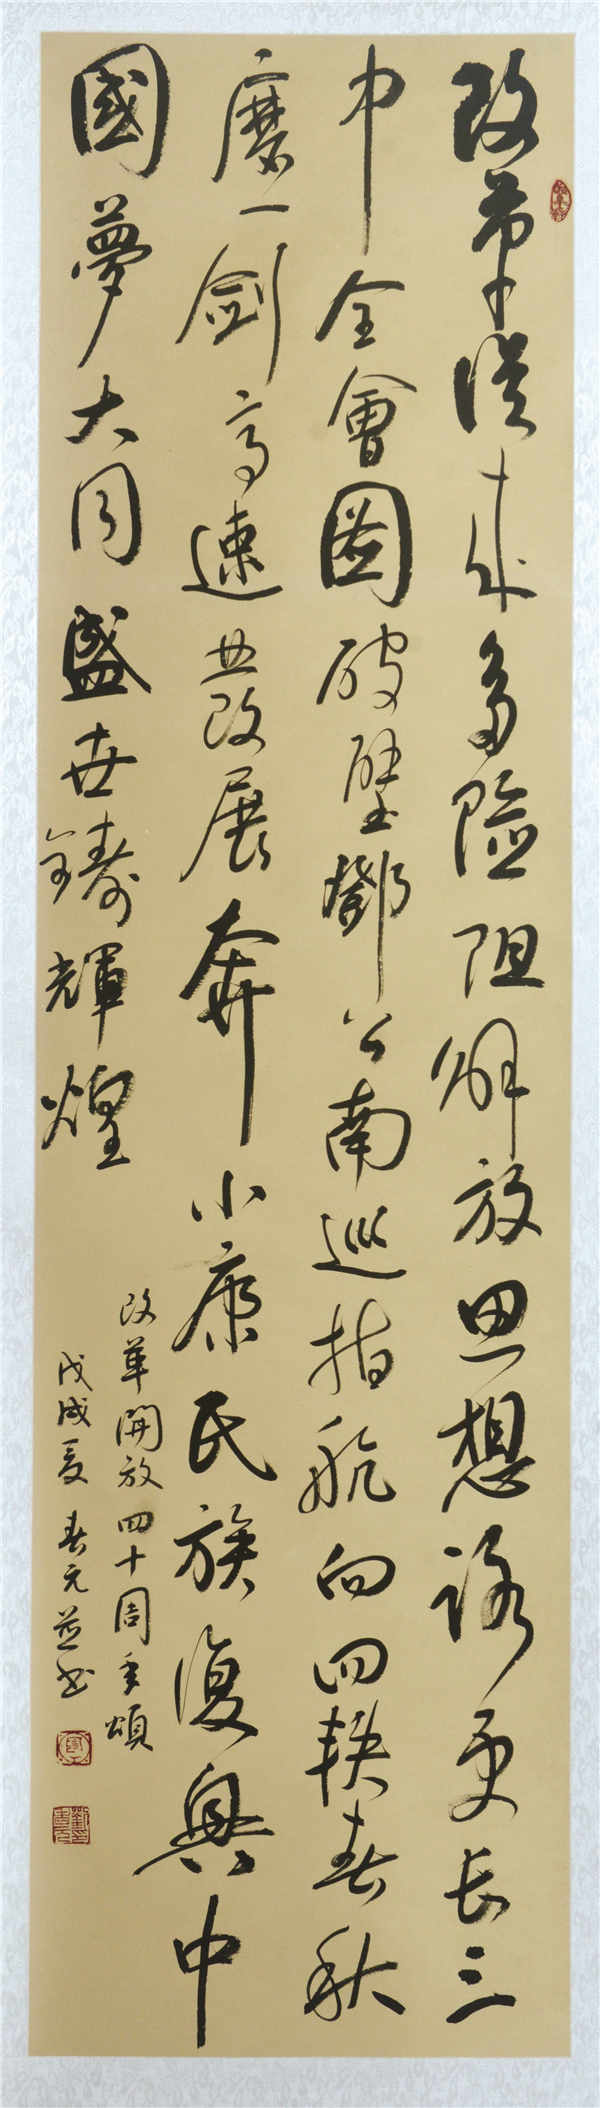 改革從來多险阻解放思想路更长三
中全會圖破壁鄧公南巡指航向四軼春秋
磨一劍高速發展奔小康民族復興中
國夢大同盛世鑄輝煌
改革開放四十周年頌
戊戌夏春元並书